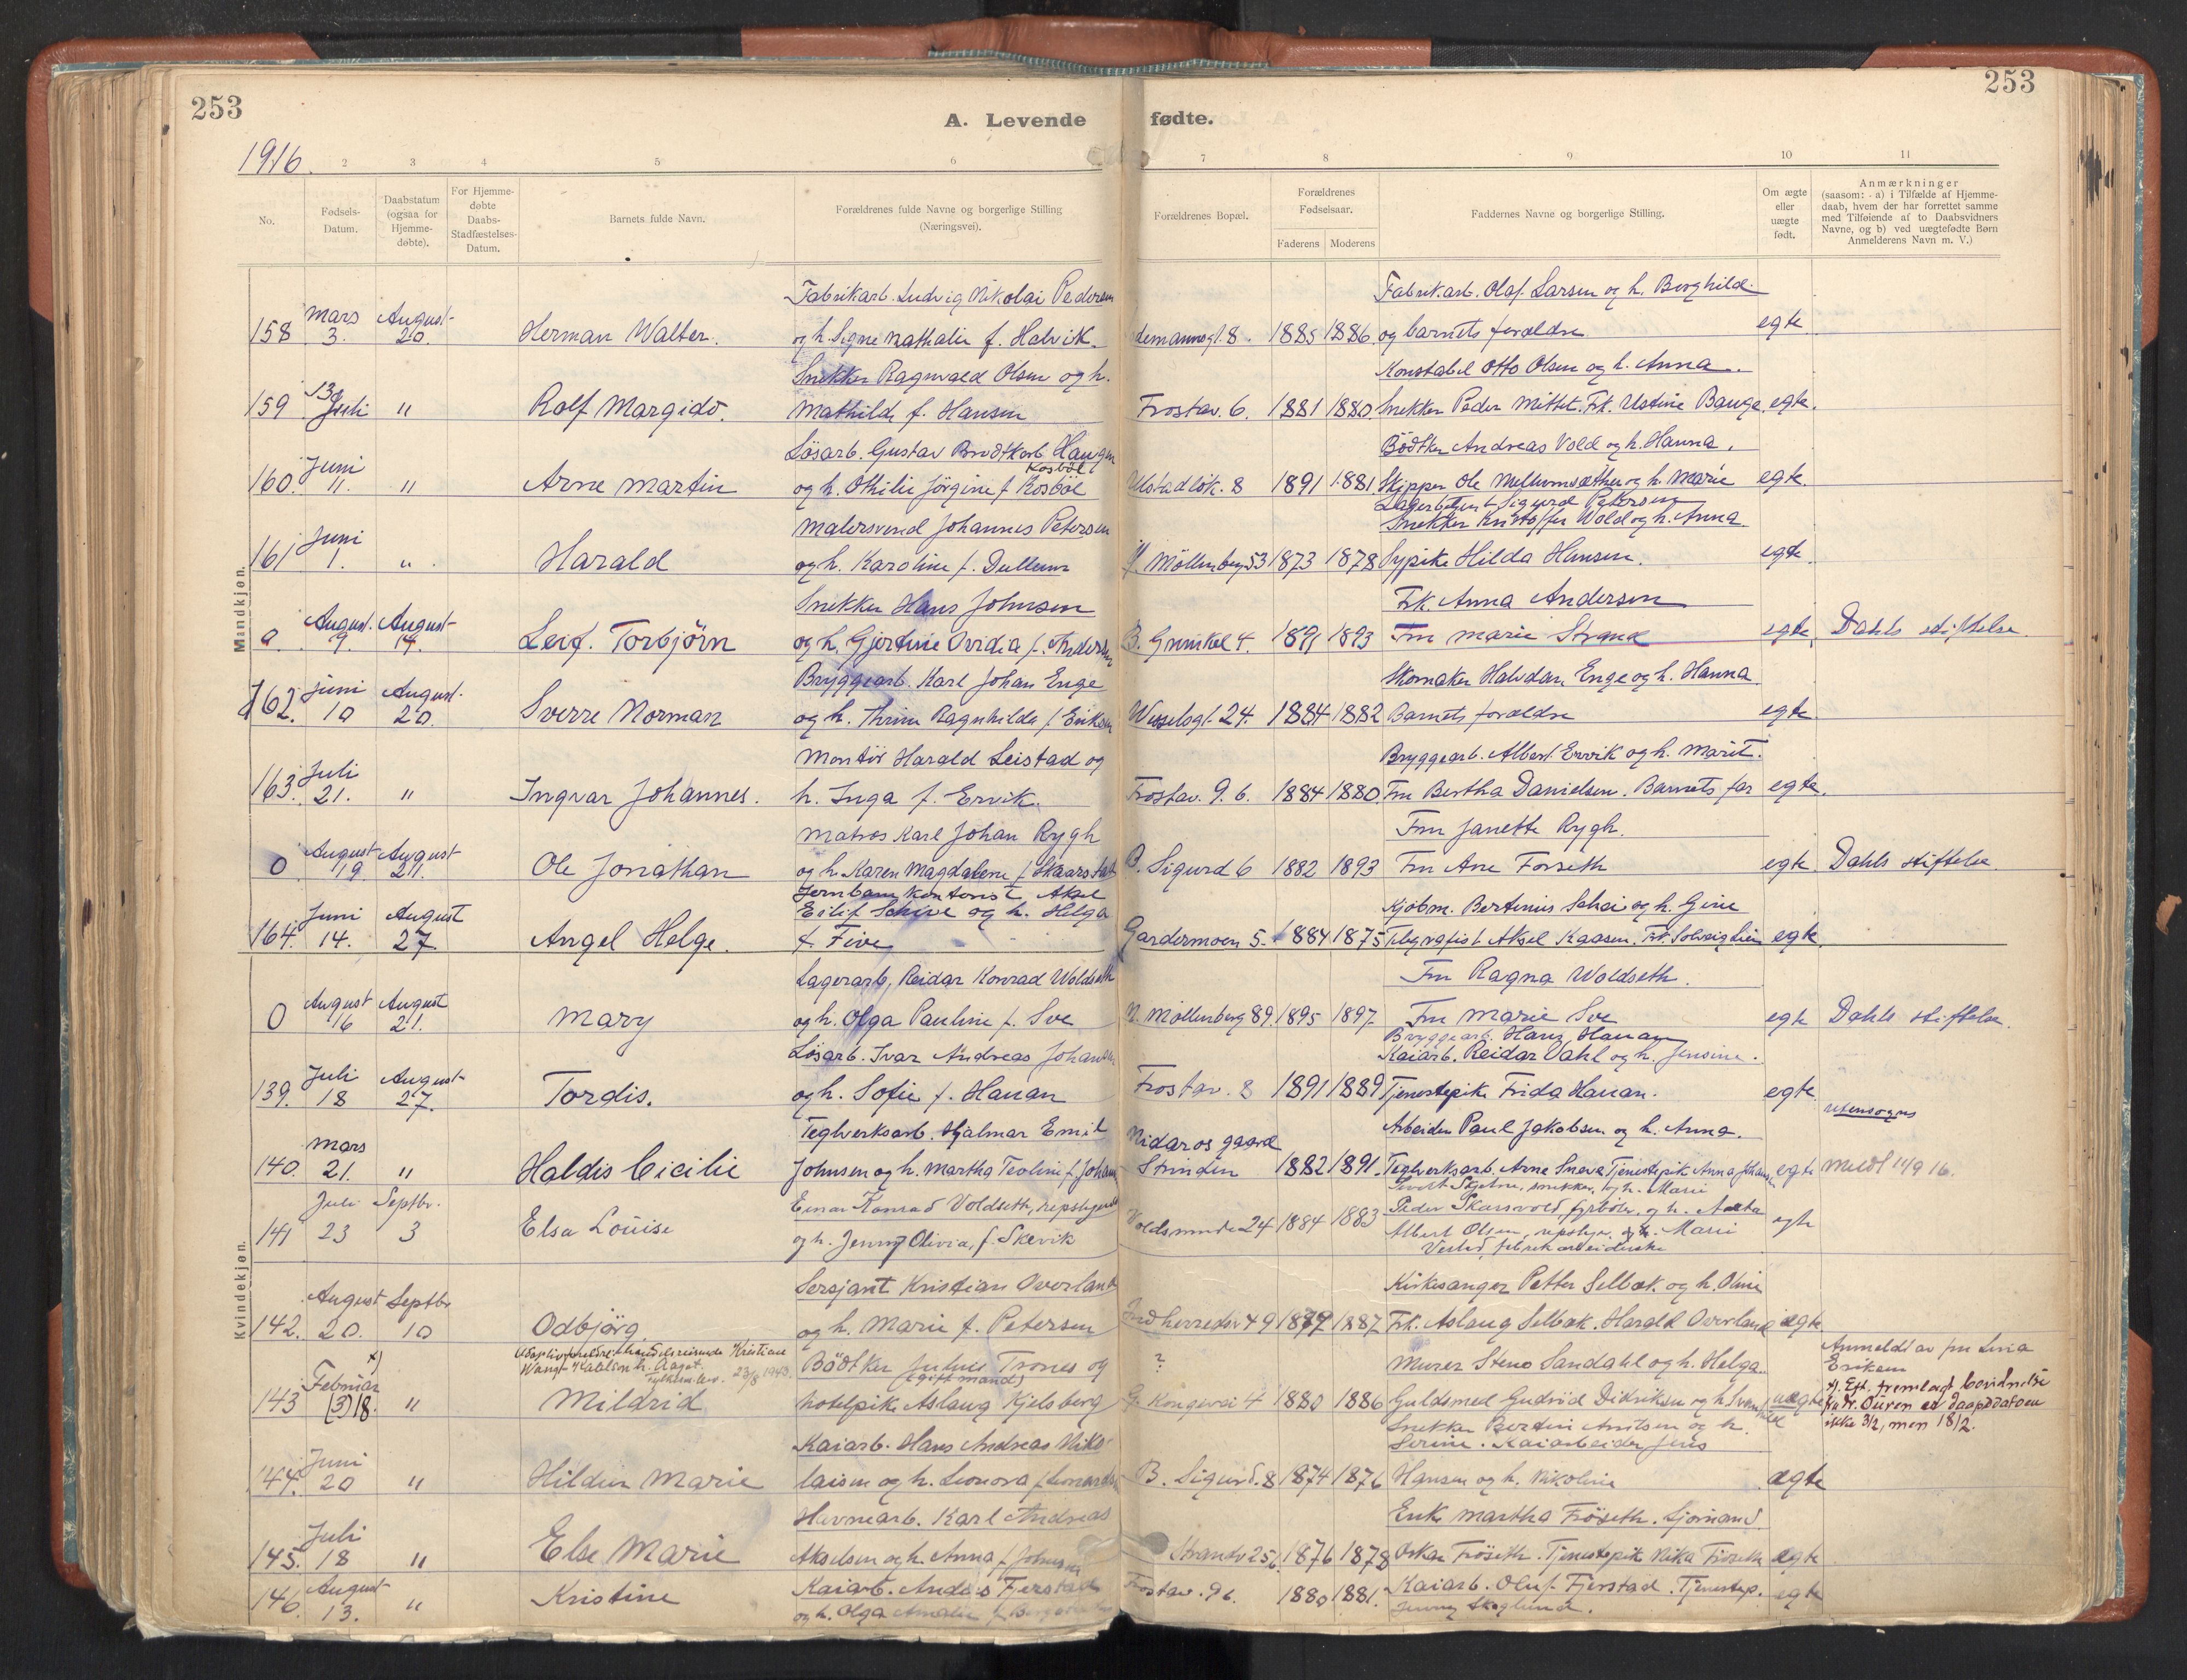 253
253
A. Levende fødte.
1916.
2 3 4 5 6 7 8 9 10 11
No.
Fødsels-Datum.
Daabstatum (ogsaa for Hjemme-døbte).
For Hjemme-døbte Daabs-Stadfæstelses-Datum.
Barnets fulde Navn.
Forældrenes fulde Navne og borgerlige Stilling (Næringsvei).
Forældrenes Bopæl.
Forældrenes Fødselsaar.
Faderens Moderens
Faddernes Navne og borgerlige Stilling.
Om ægte eller uægte født.
Anmærkninger (saasom: a) i Tilfælde af Hjemme-daab, hvem der har forrettet samme med Tilføiende af to Daabsvidners Navne, og b) ved uægtefødte Børn Anmelderens Navn m. V.)
Mandkjøn.
Fabrikarb. Ludvig Nikolai Pedersen Fabrik.arb. Olaf Larsen og h. Borghild
158 Mars 3. August 20. Herman Walter. og h. Signe Nathalie f. Halvik. 8. 1885 1886. og barnets forældre egte
Snekker Ragnvald Olsen og h. Konstabel Otto Olsen og h. Anna.
159 13 Juli " Rolf Margido. Mathilde f. Hansen Frostav. 6. 1881 1880. Snekker Peder Mittet. Frk. Ustine Bauge egte.
Lösarb. Gustav Brodtkorb Haugen Bödtker Andreas Vold og h. Hanna.
160. Juni 11. " Arne Martin og h. Othilie Jörgine f. Kosböl Kosböl Ulstadlök. 8 1891 1881 Skipper Ole Mellumsæther og h. Marie egte.
Lagerbetjent Sigurd Petersen
Malersvend Johannes Petersen Snekker Kristoffer Wold og h. Anna.
161 Juni 1. " Harald og h. Karoline f. Dullum Möllenberg 53 1873 1878 Sypike Hilda Hansen. egte.
Snekker Hans Johnsen Frk. Anna Andersen
0. August 9. August 14. Leif Torbjörn og h. Gjertine Ovidia f. Andersen B. Grimkel 4. 1891 1893 Fru Marie Strand egte Dahls stiftelse.
Bryggearb. Karl Johan Enge Skomaker Halvdan Enge og h. Hanna.
162. Juni 10 August 20. Sverre Norman og h. Thrine Ragnhilda f. Eriksen Wesselsgt. 24. 1884 1882 Barnets forældre egte
Montör Harald Leistad og Bryggearb. Albert Ervik og h. Marit.
163. Juli 21. " Ingvar Johannes. h. Inga f. Ervik. Frostav. 9.b. 1884 1880 Fru Bertha Danielsen. Barnets far egte.
Matros Karl Johan Rygh Fru Janette Rygh.
0 August 19. August 21. Ole Jonathan og h. Karen Magdalene f. B. Sigurd 6 1882 1893 Fru Ane Forseth egte Dahls stiftelse.
Jernbanekontorist Aksel
Eilif Schive og h. Helga Kjöbm. Bertinius Schei og h. Gine
164. Juni 14. August 27 Angel Helge. f. Five Gardermoen 5. 1884 1875 Telegrafist Aksel Kaasen. Frk. Solveig Lien egte.
Lagerarb. Reidar Konrad Woldseth Fru Ragna Woldseth.
0 August 16 August 21. Mary og h. Olga Pauline f. Sve N. Möllenberg 89. 1895 1897. Fru Marie Sve egte Dahls stiftelse.
Kvindekjøn.
Bryggearb. Hans Hanan
Lösarb. Ivar Andreas Johansen Kaiarb. Reidar Dahl og h. Jensine.
139. Juli 18 August 27. Tordis. og h. Sofie f. Hanan Frostav. 8 1891 1889 Tjenestepike Frida Hanan. egte
Teglverksarb. Hjalmar Emil Nidaros gaard Arbeider Paul Jakobsen og h. Anna. utensogns
140. Mars 21. " Haldis Cicilie Johnsen og h. Martha Teoline f. Strinden 1882 1891. Teglverksarb. Arne Tjenestepik Anna egte Meldt 11/9 16.
Sivert snekker, og h. Marie
Einar Konrad Voldseth, Peder Skarsvold, fyrböter, og h.
141 Juli 23 Septbr. 3 Elsa Louise og h. Jenny Olivia, f. Skevik Voldsminde 24 1884 1883 Albert Olsen, og h. Marie egte
fabrikarbeiderske
Sersjant Kristian Overland Kirkesanger Petter Selbæk og h. Oline
142. August 20. Septbr 10 Odbjörg. og h. Marie f. Petersen Indherredsv 49 1887 Frk. Aslaug Selbæk. Harald Overland ægte
handelsreisende Kristian
h. Aagot. 23/8 1943.
Bödtker Julius Trones og (gift mand) ? Murer Steno Sandahl og h. Helga. Anmeldt av fru Lina Eriksen
143 x) Februar (3) 18. " Mildrid hotelpike Aslaug Kjelsberg G. Kongevei 4 1880 1886 Guldsmed Gudröd Didriksen og h. uægte x). Eft. fremlagt bevidnelse fra Dr. Ouren er daapsdatoen ikke 3/2, men 18/2.
Snekker Bertin og h.
Kaiarb. Hans Andreas Niko- Serine. Kaiarbeider Jens
144. Juni 20 " Hildur Marie laisen og h. Leonora f. B. Sigurd. 8 1874 1876 Hansen og h. Nikoline ægte
Havnearb. Karl Andreas Enke Martha Fröseth. Sjömand
145. Juli 18 " Else Marie Akselsen og h. Anna f. Johnsen Strandv 25 b. 1876 1878 Oskar Fröseth. Tjenestepik Nika Fröseth ægte
146. August 13. " Kristine Kaiarb. Anders Fjerstad Frostav. 9 b. 1880 1881. Kaiarb. Oluf Fjerstad. Tjenestep. egte
og h. Olga Amalie f. Jenny Skoglund.